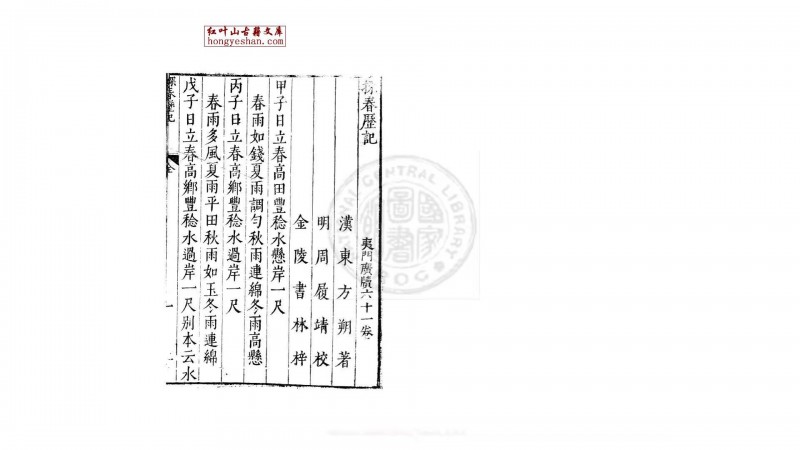 红叶山古籍文库
hongyeshan.com
探春歷記
夷門廣牘六十一卷
漢東方朔著
明周履靖校
金陵書林梓
甲子日立春高田豐稔水懸岸一尺
春雨如錢夏雨調勻秋雨連綿冬雨高懸
丙子日立春高鄉豐稔水過岸一尺
春雨多風夏雨平田秋雨如玉冬雨連綿
戊子日立春高鄉豐稔水過岸一尺別本云水
探春歷記
全
一
國家圖書館
NATIONAL CENTRAL LIBRARY